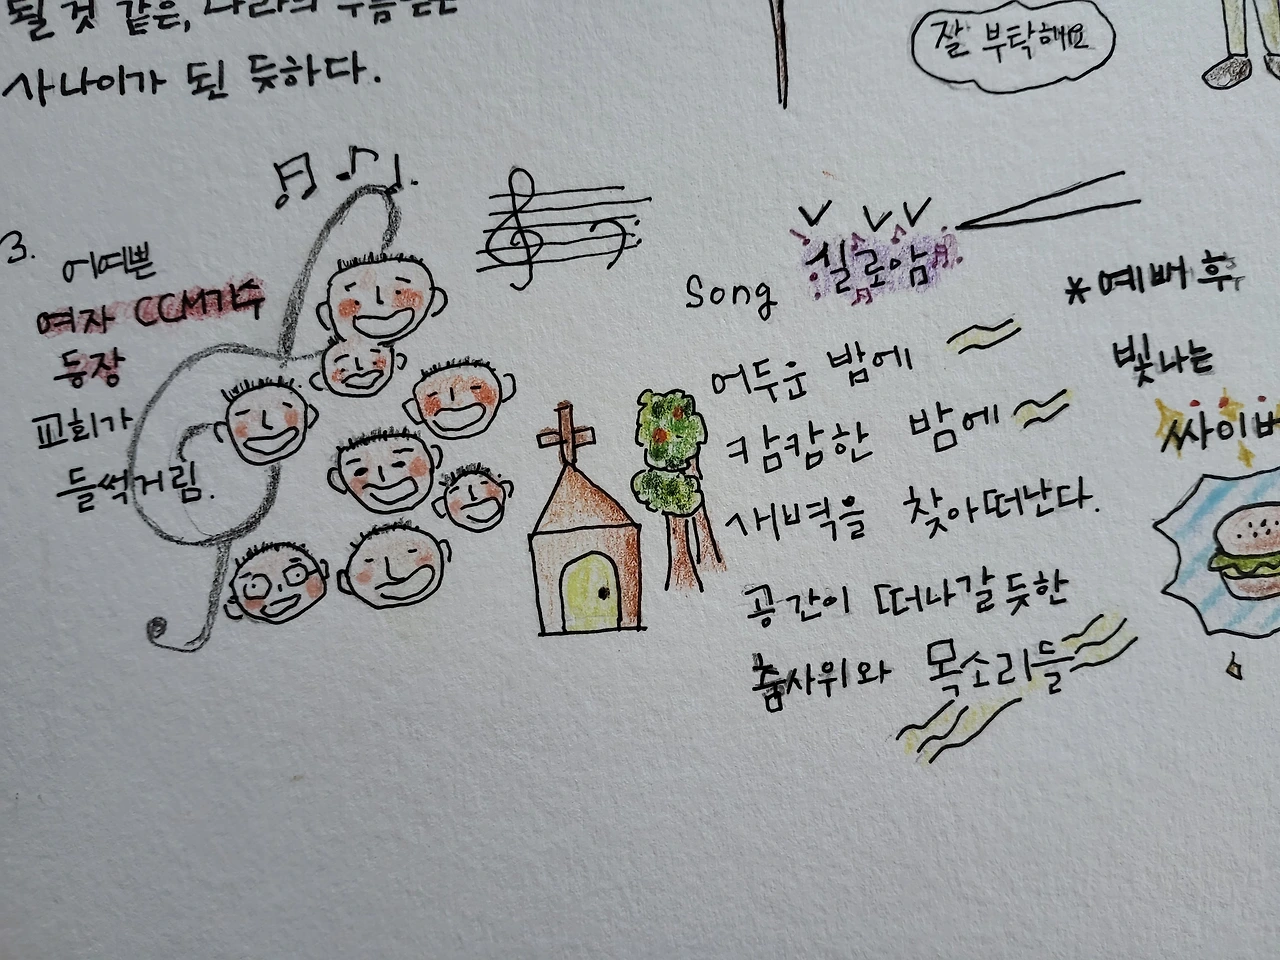 될 것 같은, 나라의 부름받은
사나이가 된 듯하다.
잘 부탁해요
3.
어예쁜
여자 CCM가수
등장
교회가
들썩거림.
Song 실로암
어두운 밤에
캄캄한 밤에
새벽을 찾아떠난다.
공간이 떠나갈듯한
춤사위와 목소리들
*예배 후,
빛나는
싸이버